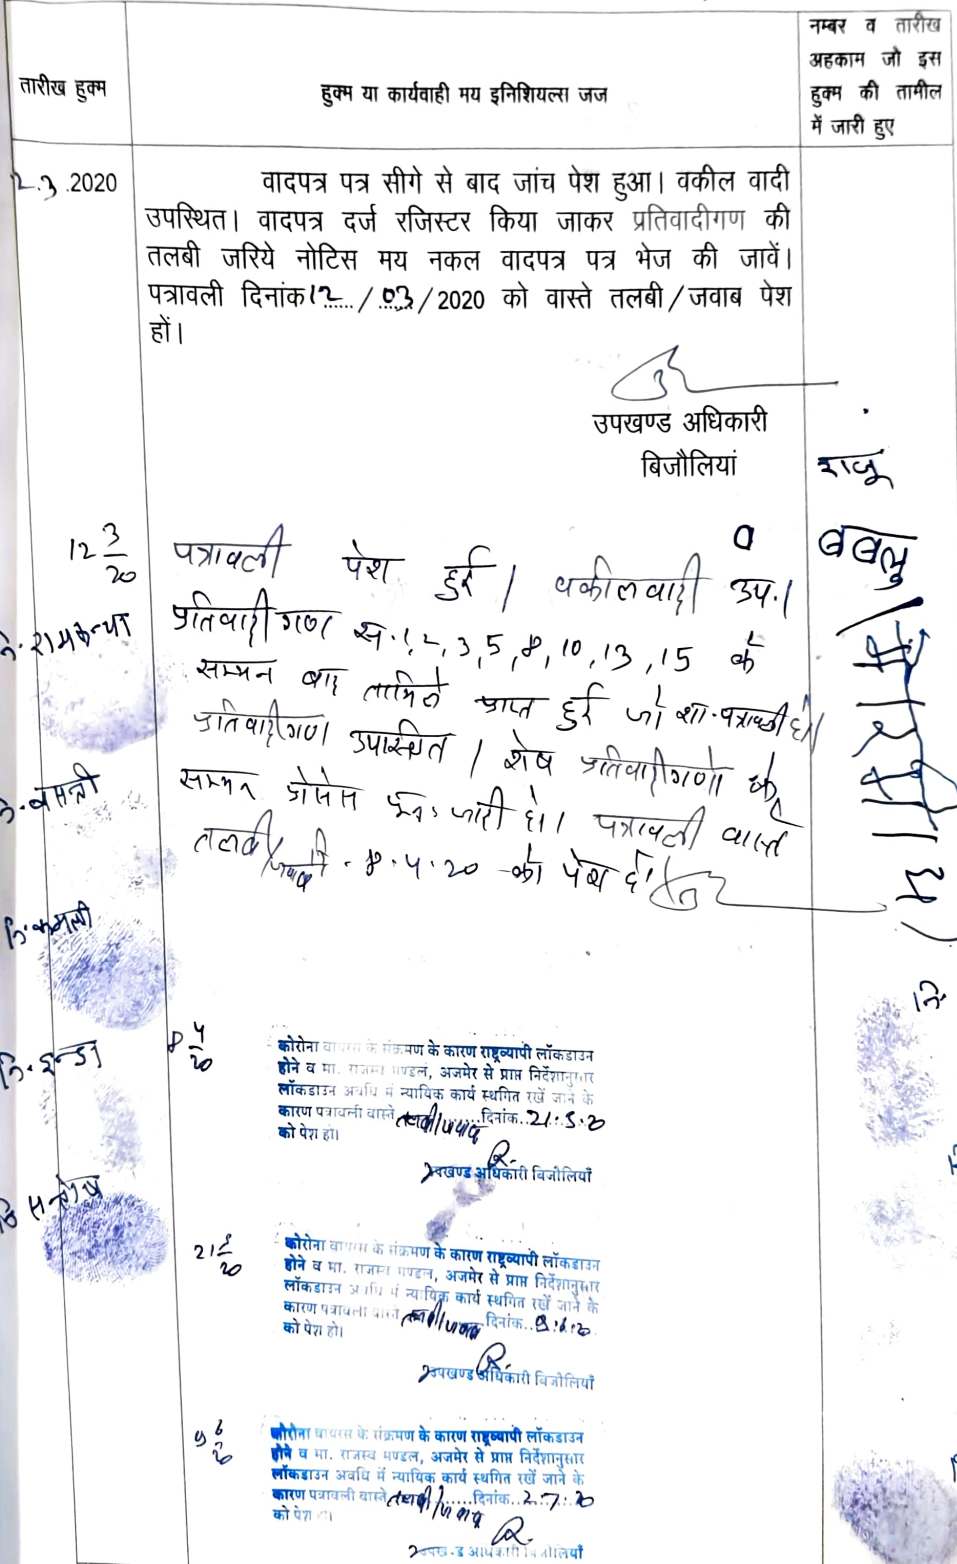 तारीख हुक्म
हुक्म या कार्यवाही मय इनिशियल्स जज
नम्बर व तारीख
अहकाम जो इस
हुक्म की तामील
में जारी हुए
2.3.2020
वादपत्र पत्र सीगे से बाद जांच पेश हुआ। वकील वादी
उपस्थित। वादपत्र दर्ज रजिस्टर किया जाकर प्रतिवादीगण की
तलबी जरिये नोटिस मय नकल वादपत्र पत्र भेज की जावें।
पत्रावली दिनांक 12/03/2020 को वास्ते तलबी/जवाब पेश
हों।
उपखण्ड अधिकारी
बिजौलियां
राजू
बबलु
12 3/20
पत्रावली पेश हुई। वकील वादी उप.।
प्रतिवादीगण स. 1, 2, 3, 5, 8, 10, 13, 15 के
सम्मन बाद तामिल प्राप्त हुई जो शा. पत्रावली हो।
प्रतिवादीगण उपस्थित। शेष प्रतिवादीगणो के
सम्मन प्रोसेस पुनः जारी हो। पत्रावली वास्ते
तलबी/जवाब 8.4.20 को पेश हो।
नि. रामकन्या
नि. बसन्ती
नि. कमली
नि.
8 4/20
कोरोना वायरस के संक्रमण के कारण राष्ट्रव्यापी लॉकडाउन
होने व मा. राजस्व मण्डल, अजमेर से प्राप्त निर्देशानुसार
लॉकडाउन अवधि में न्यायिक कार्य स्थगित रखें जाने के
कारण पत्रावली वास्ते तलबी/जवाब दिनांक 21.5.20
को पेश हो।
उपखण्ड अधिकारी बिजौलियाँ
नि. सन्तोष
21 5/20
कोरोना वायरस के संक्रमण के कारण राष्ट्रव्यापी लॉकडाउन
होने व मा. राजस्व मण्डल, अजमेर से प्राप्त निर्देशानुसार
लॉकडाउन अवधि में न्यायिक कार्य स्थगित रखें जाने के
कारण पत्रावली वास्ते तलबी/जवाब दिनांक 9.6.20
को पेश हो।
उपखण्ड अधिकारी बिजौलियाँ
9 6/20
कोरोना वायरस के संक्रमण के कारण राष्ट्रव्यापी लॉकडाउन
होने व मा. राजस्व मण्डल, अजमेर से प्राप्त निर्देशानुसार
लॉकडाउन अवधि में न्यायिक कार्य स्थगित रखें जाने के
कारण पत्रावली वास्ते तलबी/जवाब दिनांक 2.7.20
को पेश हो।
उपखण्ड अधिकारी बिजौलियाँ